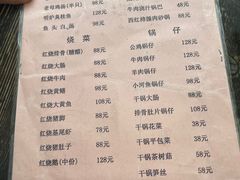 老母鸡汤(半只) 98元
明炉臭桂鱼 128元
鱼头白汤 58元
牛肉泡什锅巴 48元
西红柿滑肉砂锅 58元
烧菜
红烧排骨(糖醋) 88元
红烧大肠 88元
红烧牛肉 98元
红烧黄鳝 98元
红烧大黄鱼 128元
红烧猪脚 88元
红烧基尾虾 78元
红烧猪肚子 88元
红烧鹅(中份) 128元
锅仔
公鸡锅仔 128元
牛肉锅仔 128元
羊肉锅仔 128元
小河鱼锅仔 98元
干锅大肠 88元
排骨肚片锅仔 108元
干锅花菜 38元
干锅平包菜 38元
干锅茶树菇 58元
干锅笋丝 58元